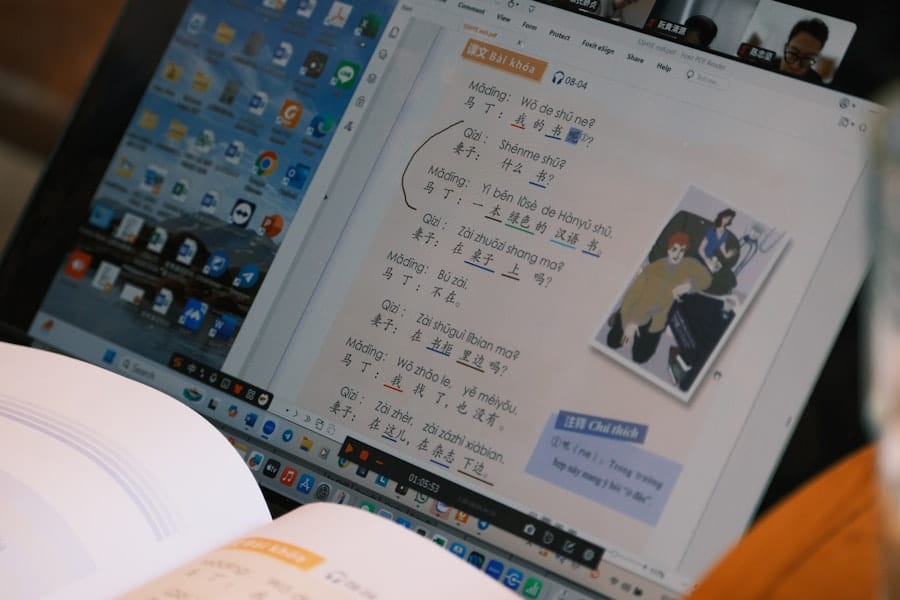 Comment
View
Form
Protect
Foxit eSign
Share
Help
课文 Bài khóa
08-04
Mǎdīng: Wǒ de shū ne?
马丁：我 的 书 呢①?
Qīzi: Shénme shū?
妻子：什么 书?
Mǎdīng: Yì běn lǜsè de Hànyǔ shū.
马丁：一 本 绿色 的 汉语 书。
Qīzi: Zài zhuōzi shang ma?
妻子：在 桌子 上 吗?
Mǎdīng: Bú zài.
马丁：不 在。
Qīzi: Zài shūguì lǐbian ma?
妻子：在 书柜 里边 吗?
Mǎdīng: Wǒ zhǎo le, yě méiyǒu.
马丁：我 找 了，也 没有。
Qīzi: Zài zhèr, zài zázhì xiàbian.
妻子：在 这儿，在 杂志 下边。
注释 Chú thích
①呢 (ne): Trong trường
hợp này mang ý hỏi "ở đâu".
Search
01:05:53
khóa